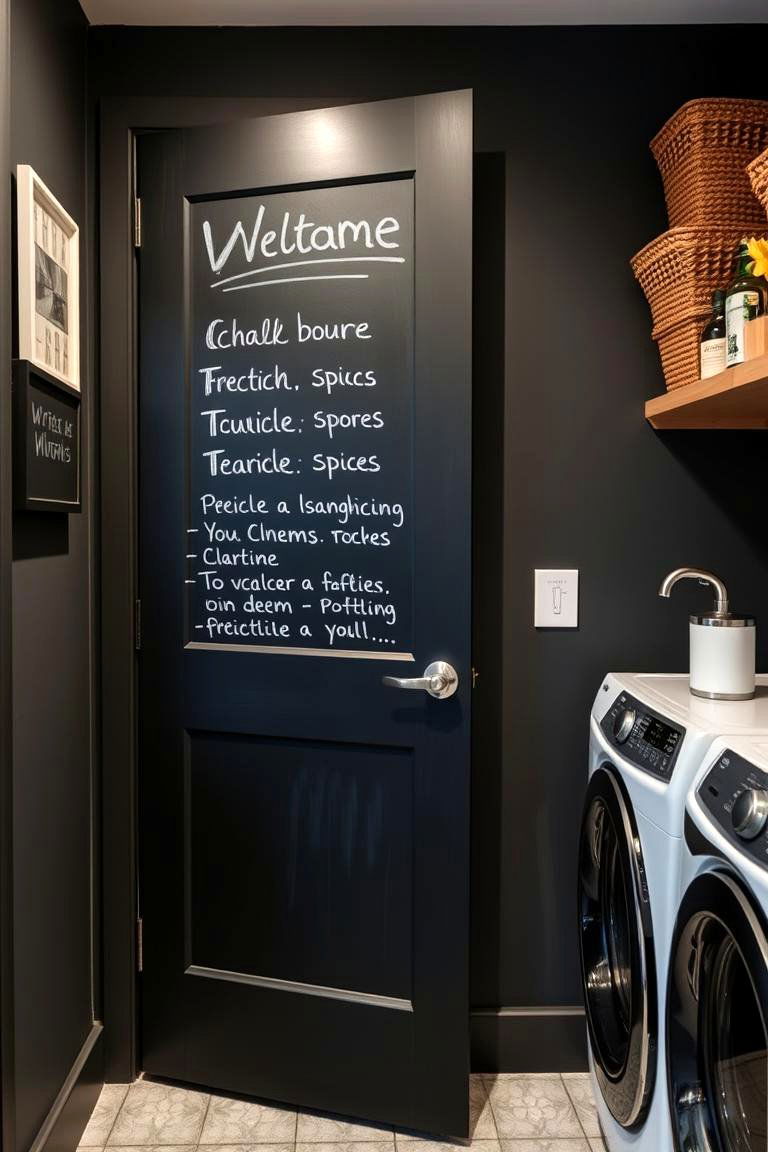 Weltame
Chalk boure
Frectich. spiccs
Tcuuicle: spores
Tearicle: spices
Peeicle a lsanghicing
- You Cinems. rockes
- Clartine
- To vcalcer a fafties.
oin deem - Poftling
- freictlile a youll....